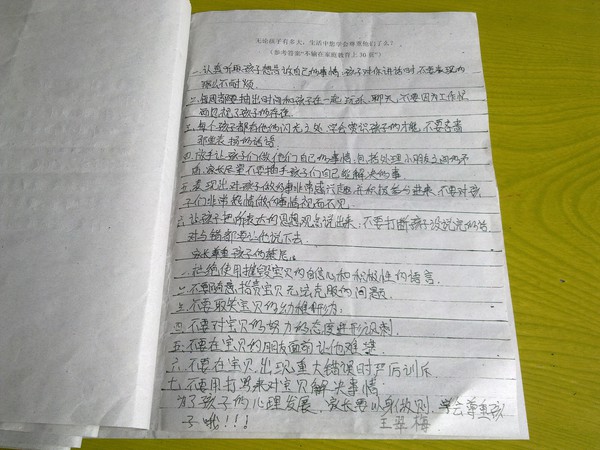 无论孩子有多大，生活中您学会尊重他们了么？
（参考答案"不输在家庭教育上30页"）
一、认真听取孩子想告诉自己的事情，孩子对你讲话时，不要表现的
那么不耐烦。
二、每周都要抽出时间和孩子在一起玩乐、聊天，不要因为工作忙
而忽视了孩子的存在。
三、每个孩子都有他们闪光之处，学会赏识孩子们的才能，不要吝啬
那些表扬的话语
四、放手让孩子们做他们自己的事情，包括处理小朋友之间的矛
盾，家长尽量不要插手孩子们自己能解决的事
五、表现出对孩子做的事非常感兴趣，并积极参与进来，不要对孩
子们非常热情做的事情视而不见。
六、让孩子把所表达的思想观点说出来，不要打断孩子没说完的话
对与错都要让他说下去。
家长尊重孩子们的
一、拒绝使用摧毁宝贝的自信心和积极性的语言。
二、不要 指责宝贝无法克服的问题。
三、不要取笑宝贝的幼稚行为；
四、不要对宝贝的努力的态度进行讽刺。
五、不要在宝贝的朋友面前让他难堪
六、不要在宝贝出现重大错误时严厉训斥
七、不要用打骂来对宝贝解决事情
为了孩子们的心理发展，家长要以身做则，学会尊重孩
子哦！！！ 王翠梅